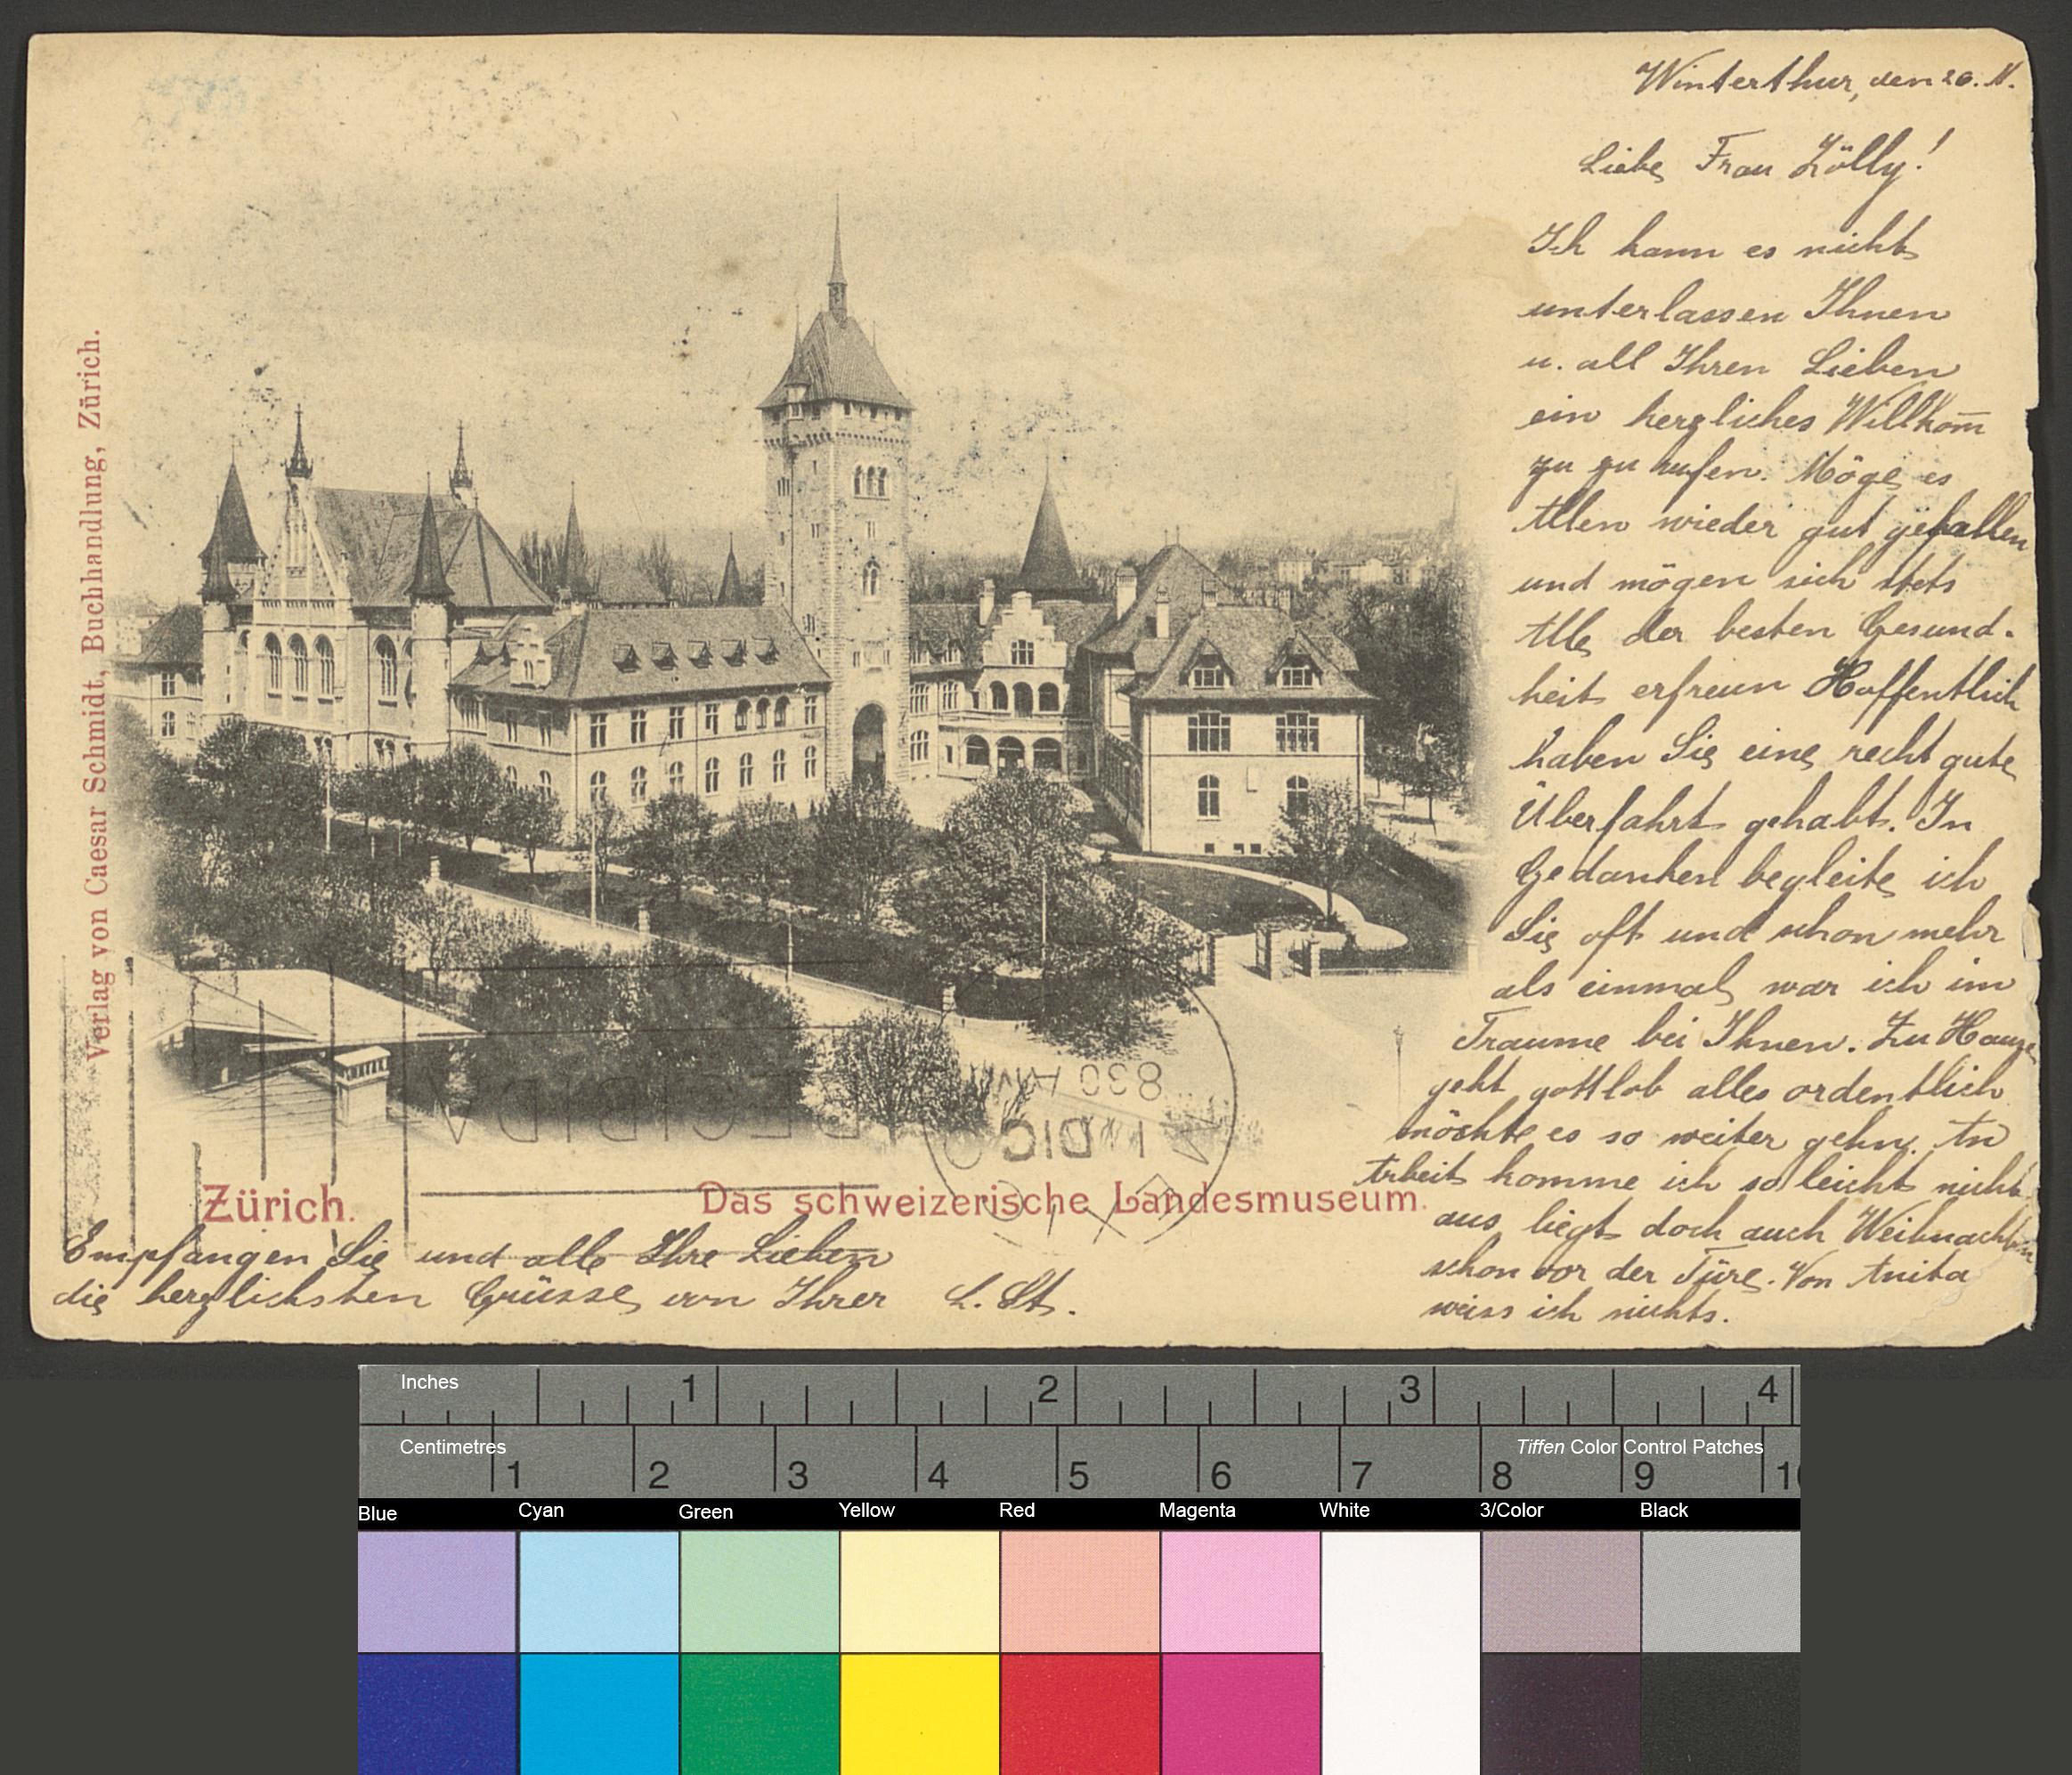 Winterthur, den 20. 11.
Liebe Frau Zölly!
Ich kann es nicht
unterlassen Ihnen
u. all Ihren Lieben
ein herzliches Willkom̅
zu zu rufen. Möge es
Allen wieder gut gefallen
und mögen sich stets
Alle der besten Gesund-
heit erfreun Hoffentlich
haben Sie eine recht gute
Überfahrt gehabt. In
Gedanken begleite ich
Sie oft und schon mehr
als einmal war ich im
Traume bei Ihnen. Zu Hause
geht gottlob alles ordentlich
möchte es so weiter gehn. An
Arbeit komme ich so leicht nicht
aus, liegt doch auch Weihnachten
schon vor der Türe. Von Anita
weiss ich nichts.
Empfangen Sie und alle Ihre Lieben
die herzlichsten Grüsse von Ihrer L. St.
Zürich.
Das schweizerische Landesmuseum.
Verlag von Caesar Schmidt, Buchhandlung, Zürich.
RECIBIDA
830 AM
1 DIC
Inches
1 2 3 4
Centimetres
Tiffen Color Control Patches
1 2 3 4 5 6 7 8 9 10
Blue Cyan Green Yellow Red Magenta White 3/Color Black